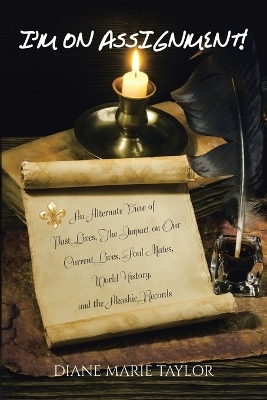 I'M ON ASSIGNMENT!
An Alternate View of
Past Lives, The Impact on Our
Current Lives, Soul Mates,
World History,
and the Akashic Records
DIANE MARIE TAYLOR